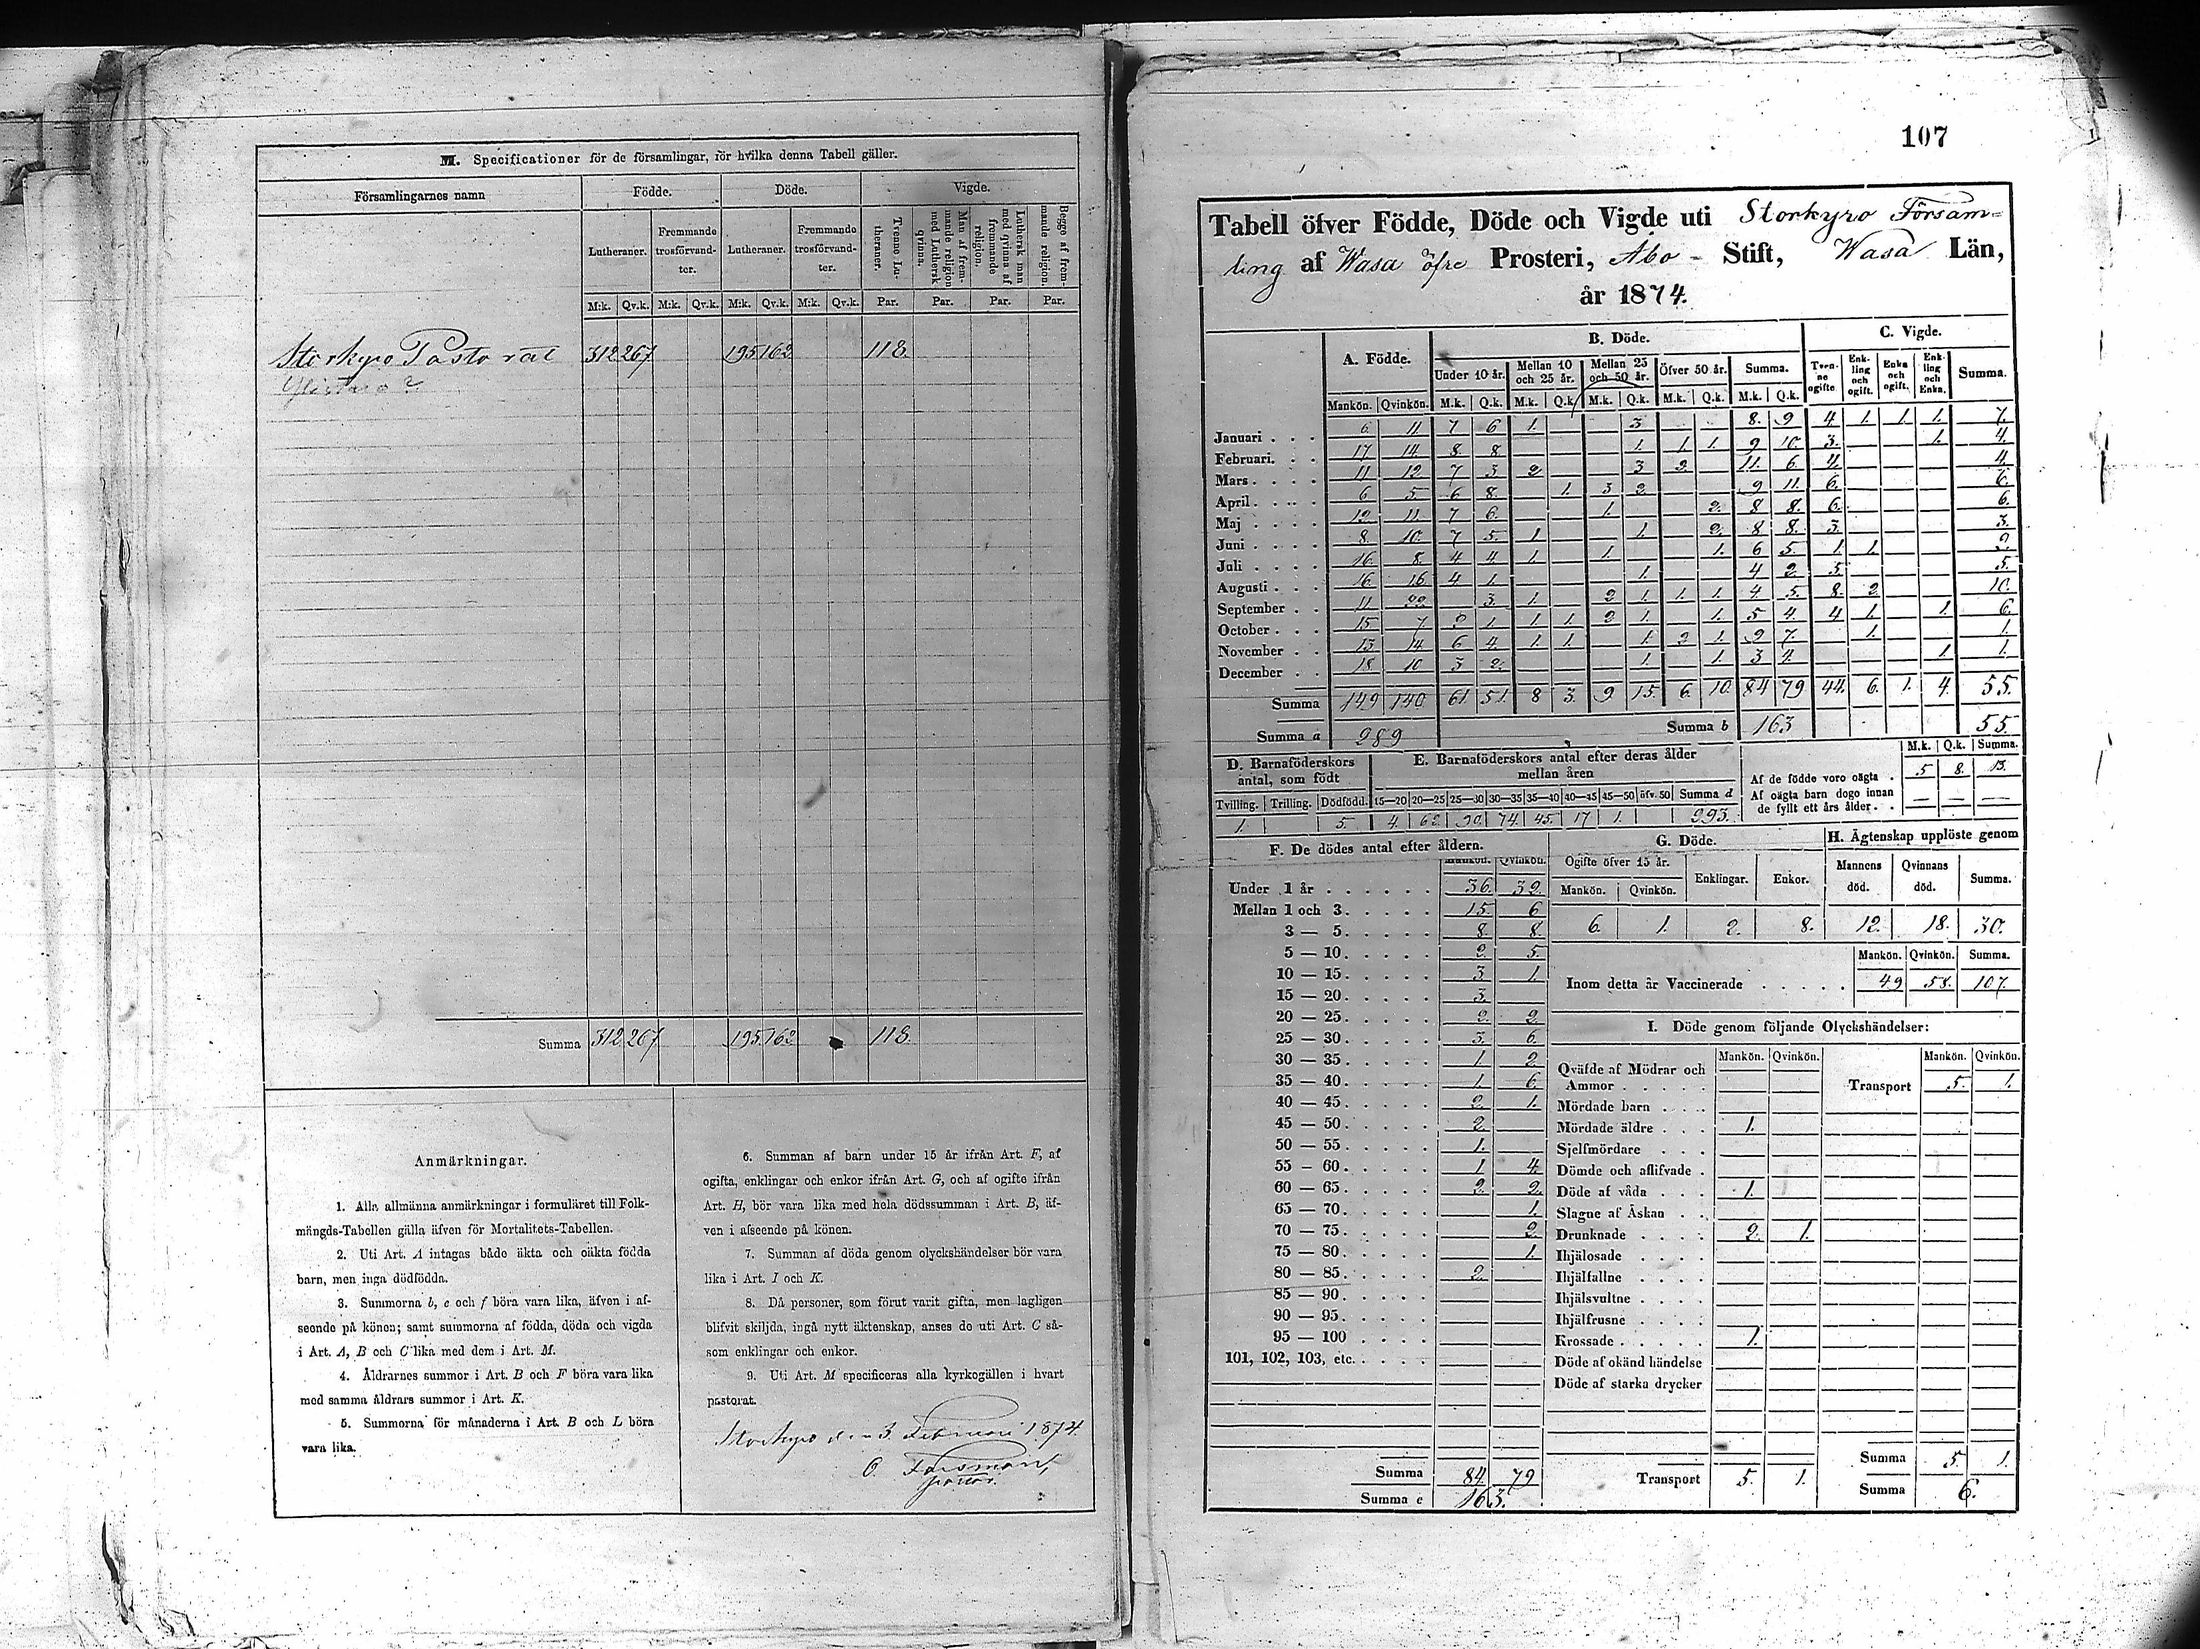 M. Specificationer för de församlingar, för hvilka denna Tabell gäller.
Församlingarnes namn | Födde. | Döde. | Vigde.
Lutheraner. | Fremmande trosförvandter. | Lutheraner. | Fremmande trosförvandter. | Tvenne Lutheraner. | Man af fremmande religion med Luthersk qvinna. | Luthersk man med qvinna af fremmande religion. | Begge af fremmande religion.
M:k. Qv.k. M:k. Qv.k. M:k. Qv.k. M:k. Qv.k. Par. Par. Par. Par.
Storkyro Pastorat 312 267 195 162 118.
Summa 312 267 195 162 118.
Anmärkningar.
1. Alla allmänna anmärkningar i formuläret till Folk-
mängds-Tabellen gälla äfven för Mortalitets-Tabellen.
2. Uti Art. A intagas både äkta och oäkta födda
barn, men inga dödfödda.
3. Summorna b, c och f böra vara lika, äfven i af-
seende på könen; samt summorna af födda, döda och vigda
i Art. A, B och C lika med dem i Art. M.
4. Åldrarnes summor i Art. B och F böra vara lika
med samma åldrars summor i Art. K.
5. Summorna för månaderna i Art. B och L böra
vara lika.
6. Summan af barn under 15 år ifrån Art. F, af
ogifta, enklingar och enkor ifrån Art. G, och af ogifte ifrån
Art. H, bör vara lika med hela dödssumman i Art. B, äf-
ven i afseende på könen.
7. Summan af döda genom olyckshändelser bör vara
lika i Art. I och K.
8. Då personer, som förut varit gifta, men lagligen
blifvit skiljda, ingå nytt äktenskap, anses de uti Art. C så-
som enklingar och enkor.
9. Uti Art. M specificeras alla kyrkogällen i hvart
pastorat.
Storkyro den 3 Februari 1874
O. Forsman,
107
Tabell öfver Födde, Döde och Vigde uti Storkyro Försam-
ling af Wasa öfre Prosteri, Åbo - Stift, Wasa Län,
år 1874.
A. Födde. | B. Döde. | C. Vigde.
Under 10 år. | Mellan 10 och 25 år. | Mellan 25 och 50 år. | Öfver 50 år. | Summa. | Tvenne ogifte | Enkling och ogift. | Enka och ogift. | Enkling och Enka. | Summa.
Mankön. Qvinkön. M.k. Q.k. M.k. Q.k. M.k. Q.k. M.k. Q.k. M.k. Q.k.
Januari . . . 6. 11 7 6 1. 3 8. 9 4 1. 1. 1. 7.
Februari. . . 17 14 8 8 1. 1. 1. 9 10. 3. 1. 4.
Mars . . . . 11 12 7 3 2 3 2. 11. 6. 4. 4.
April . . . . 6 5 6 8. 1. 3 2 9 11. 6. 6.
Maj . . . . 12. 11 7 6. 1. 2. 8 8. 6. 6.
Juni . . . . 8. 10. 7 5. 1. 1. 2. 8 8. 3. 3.
Juli . . . . 16. 8. 4 4 1. 1. 1. 6 5. 1. 1. 2.
Augusti . . . 16. 16 4 1. 1. 4 2. 5. 5.
September . . 11. 22. 3. 1. 2 1. 1. 1. 4 5. 8. 2. 10.
October . . . 15 7 2 1. 1. 1. 2 1. 1. 5 4. 4 1. 1. 6.
November . . 13 14 6 4. 1. 1. 1. 2 1. 9 7. 1. 1.
December . . 18 10 3 2. 1. 1. 3 4. 1. 1.
Summa 149 140 61 51. 8 3. 9 15. 6. 10. 84 79 44. 6. 1. 4. 55.
Summa a 289 Summa b 163 55.
D. Barnaföderskors antal, som födt
Tvilling. Trilling. Dödfödd.
1. 5.
E. Barnaföderskors antal efter deras ålder
mellan åren
15—20 20—25 25—30 30—35 35—40 40—45 45—50 öfv. 50 Summa d
4. 62. 90. 74. 45. 17 1. 293.
M.k. Q.k. Summa.
Af de födde voro oägta . 5 8. 13.
Af oägta barn dogo innan
de fyllt ett års ålder . . — — —
F. De dödes antal efter åldern.
Mankön. Qvinkön.
Under 1 år . . . . . . 36. 32.
Mellan 1 och 3. . . . . 15. 6
3 — 5. . . . . 8. 8
5 — 10. . . . . 2. 5.
10 — 15. . . . . 3. 1.
15 — 20. . . . . 3.
20 — 25. . . . . 2. 2.
25 — 30. . . . . 3. 6.
30 — 35. . . . . 1. 2.
35 — 40. . . . . 1. 6.
40 — 45. . . . . 2. 1.
45 — 50. . . . . 2.
50 — 55. . . . . 1.
55 — 60. . . . . 1 4.
60 — 65. . . . . 2. 2.
65 — 70. . . . . 1.
70 — 75. . . . . 2.
75 — 80. . . . . 1.
80 — 85. . . . . 2.
85 — 90. . . . .
90 — 95. . . . .
95 — 100 . . . .
101, 102, 103, etc. . . . .
Summa 84. 79
Summa e 163.
G. Döde.
Ogifte öfver 15 år. Enklingar. Enkor.
Mankön. Qvinkön.
6. 1. 2. 8.
H. Ägtenskap upplöste genom
Mannens död. Qvinnans död. Summa.
12. 18. 30.
Mankön. Qvinkön. Summa.
Inom detta år Vaccinerade . . . . . 49 58. 107.
I. Döde genom följande Olyckshändelser:
Mankön. Qvinkön. Mankön. Qvinkön.
Qväfde af Mödrar och
Ammor . . . . . Transport 5. 1.
Mördade barn . . .
Mördade äldre . . . 1.
Sjelfmördare . . .
Dömde och aflifvade .
Döde af våda . . . 1.
Slagne af Åskan . .
Drunknade . . . . 2. 1.
Ihjälosade . . . .
Ihjälfallne . . . .
Ihjälsvultne . . . .
Ihjälfrusne . . . .
Krossade . . . . . 1.
Döde af okänd händelse
Döde af starka drycker
Summa 5. 1.
Transport 5. 1. Summa 6.